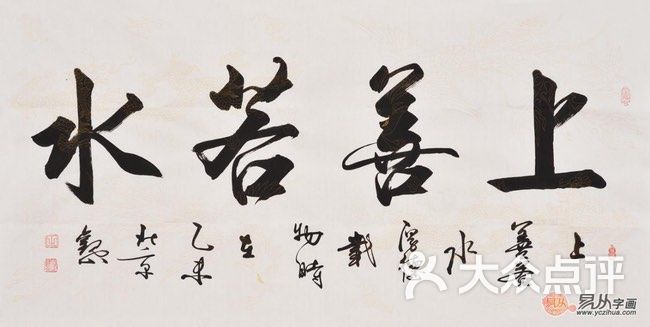 上善若水
上
善若
水
厚德
載
物時
在
乙未
北京
大众点评
易从字画
www.yczihua.com